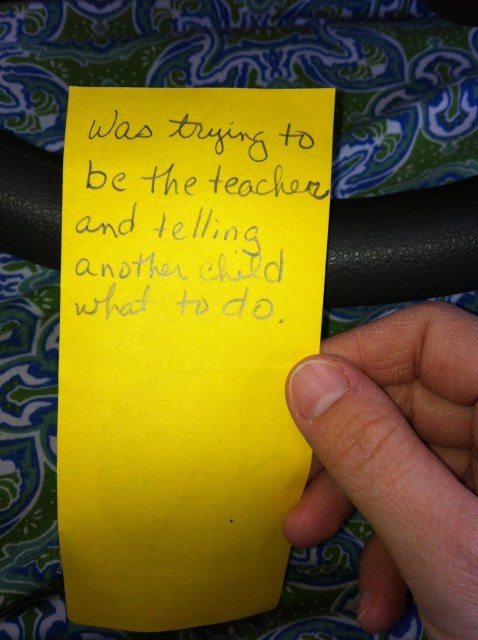 Was trying to
be the teacher
and telling
another child
what to do.